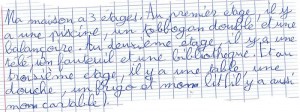 Ma maison a 3 étages. Au premier étage, il y
a une piscine, un tobbogan double et une
balançoire. Au deuxième étage, il y a une
télé, un fauteuil et une bibliothèque. Et au
troisième étage, il y a une table, une
douche, un frigo et mon lit (il y a aussi
mon cartable).